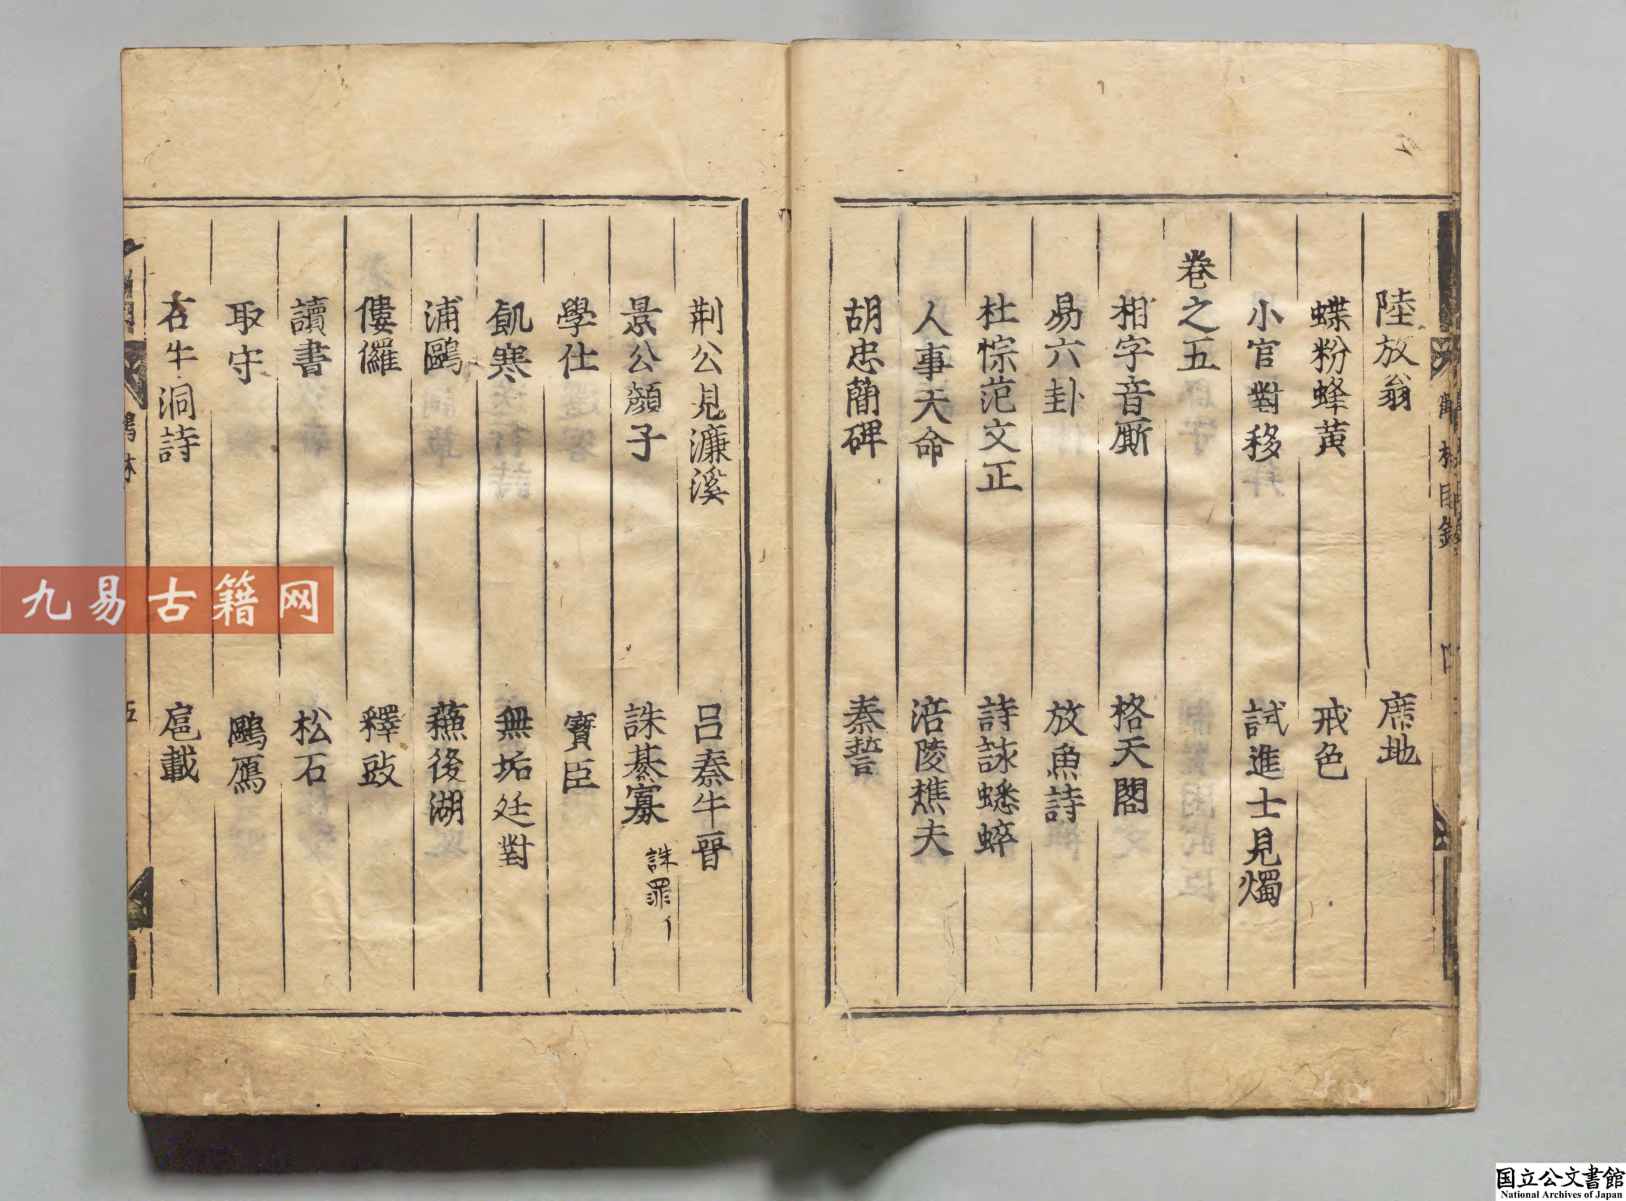 陸放翁　席地
蝶粉蜂黃　戒色
小官對移　試進士見燭
卷之五
相字音厮　格天閣
易六卦　放魚詩
杜悰范文正　詩詠蟋蟀
人事天命　涪陵樵夫
胡忠簡碑　秦誓
荆公見濂溪　呂秦牛晉
景公顏子　誅綦寡
誅罪
學仕　寶臣
飢寒　無垢廷對
浦鷗　蘓後湖
僂儸　釋豉
讀書　松石
取守　鷗鴈
石牛洞詩　扈載
九易古籍网
国立公文書館
National Archives of Japan